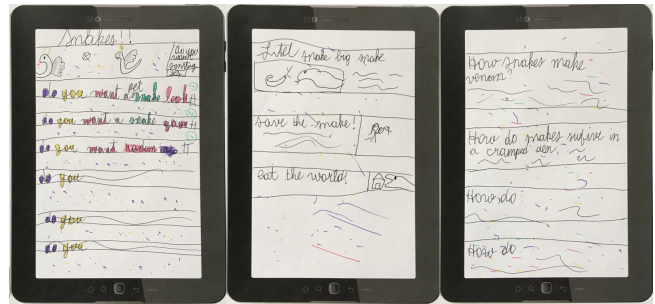 Snakes!!
do you
do you want a pet snake look it
do you want a snake game it
do you want it
do you
do you
do you
Litel snake big snake
save the snake!
eat the world!
How snakes make
venem?
How do snakes sufive in
a cramped den.
How do
How do